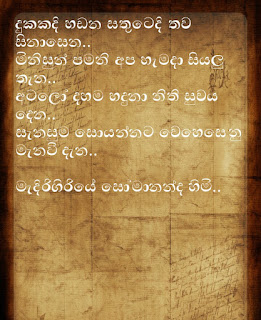 දුකකදි හඬන සතුටෙදි තව
සිනාසෙන..
මිනිසුන් පමනි අප හැමදා සියලු
තැන..
අටලෝ දහම හඳුනා නිති සුවය
දෙන..
සැනසුම සොයන්නට වෙහෙසෙනු
මැනවි දැන..
මැදිරිගිරියේ සෝමානන්ද හිමි..